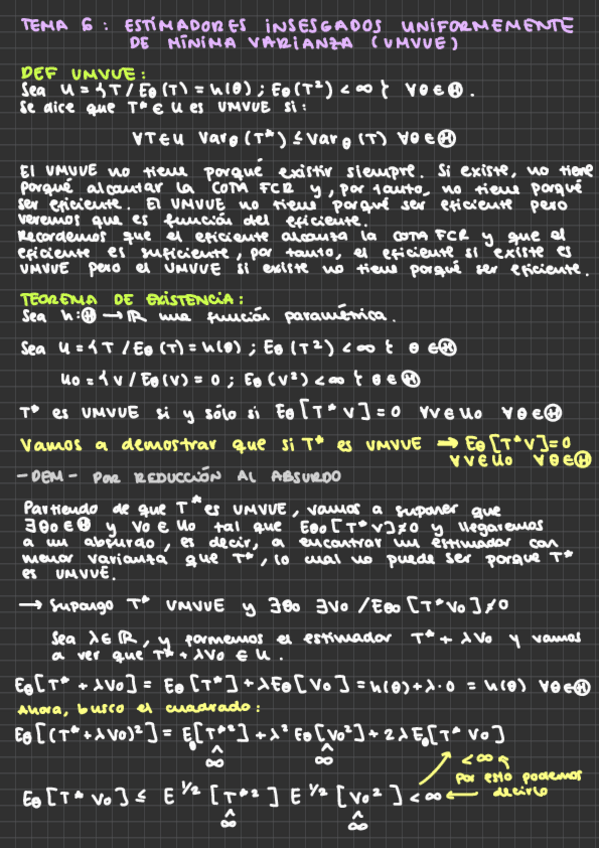 TEMA 6 : ESTIMADORES INSESGADOS UNIFORMEMENTE
DE MÍNIMA VARIANZA (UMVUE)
DEF UMVUE:
Sea U = { T / Eθ(T) = h(θ) ; Eθ(T²) < ∞ } ∀θ ∈ Θ .
Se dice que T* ∈ U es UMVUE si :
∀T∈U Varθ (T*) ≤ Varθ (T) ∀θ ∈ Θ
El UMVUE no tiene porqué existir siempre. Si existe, no tiene
porqué alcanzar la COTA FCR y, por tanto, no tiene porqué
ser eficiente. El UMVUE no tiene porqué ser eficiente pero
veremos que es función del eficiente.
Recordemos que el eficiente alcanza la COTA FCR y que el
eficiente es suficiente, por tanto, el eficiente si existe es
UMVUE pero el UMVUE si existe no tiene porqué ser eficiente.
TEOREMA DE EXISTENCIA:
Sea h: Θ → ℝ una función paramétrica.
Sea U = { T / Eθ (T) = h(θ) ; Eθ (T²) < ∞ } θ ∈ Θ
U0 = { V / Eθ(V) = 0 ; Eθ (V²) < ∞ } θ ∈ Θ
T* es UMVUE si y sólo si Eθ [T* V] = 0 ∀V ∈ U0 ∀θ ∈ Θ
Vamos a demostrar que si T* es UMVUE → Eθ [T* V] = 0
∀V ∈ U0 ∀θ ∈ Θ
- DEM - POR REDUCCIÓN AL ABSURDO
Partiendo de que T* es UMVUE, vamos a suponer que
∃θ0 ∈ Θ y V0 ∈ U0 tal que Eθ0 [T* V] ≠ 0 y llegaremos
a un absurdo, es decir, a encontrar un estimador con
menor varianza que T*, lo cual no puede ser porque T*
es UMVUE.
→ Supongo T* UMVUE y ∃θ0 ∃V0 / Eθ0 [T* V0] ≠ 0
Sea λ ∈ ℝ, y formemos el estimador T* + λV0 y vamos
a ver que T* + λV0 ∈ U .
Eθ [T* + λV0] = Eθ [T*] + λEθ [V0] = h(θ) + λ·0 = h(θ) ∀θ ∈ Θ
Ahora, busco el cuadrado:
Eθ [(T* + λV0)²] = Eθ[T*²] + λ² Eθ [V0²] + 2λ Eθ[T* V0]
^ ^
∞ ∞
< ∞
Por esto podemos
decirlo
Eθ [T* V0] ≤ E^1/2 [T*²] E^1/2 [V0²] < ∞ ←
^ ^
∞ ∞